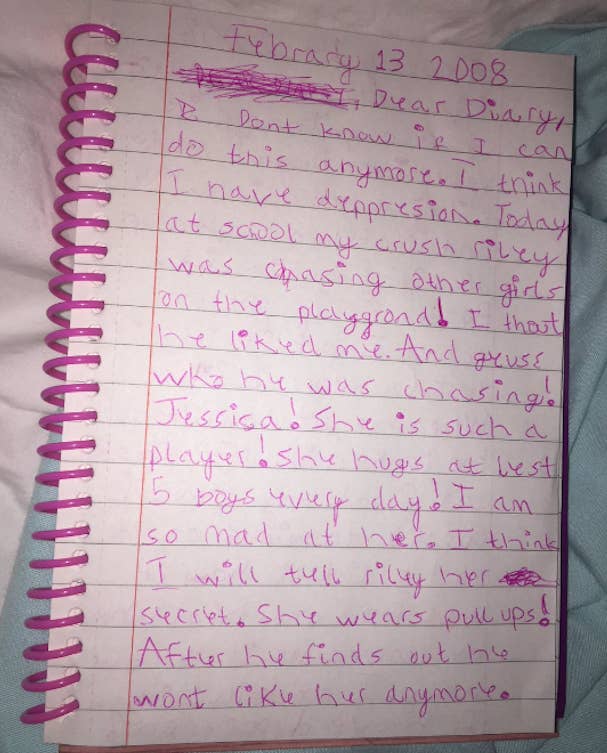 Febrary 13 2008
Dear Diary,
I Dont know if I can
do this anymore. I think
I have deppresion. Today
at scool my crush riley
was chasing other girls
on the playgrond! I thout
he liked me. And guess
who he was chasing!
Jessica! She is such a
player! She hugs at lest
5 boys every day! I am
so mad at her. I think
I will tell riley her
secret. She wears pull ups!
After he finds out he
wont like her anymore.